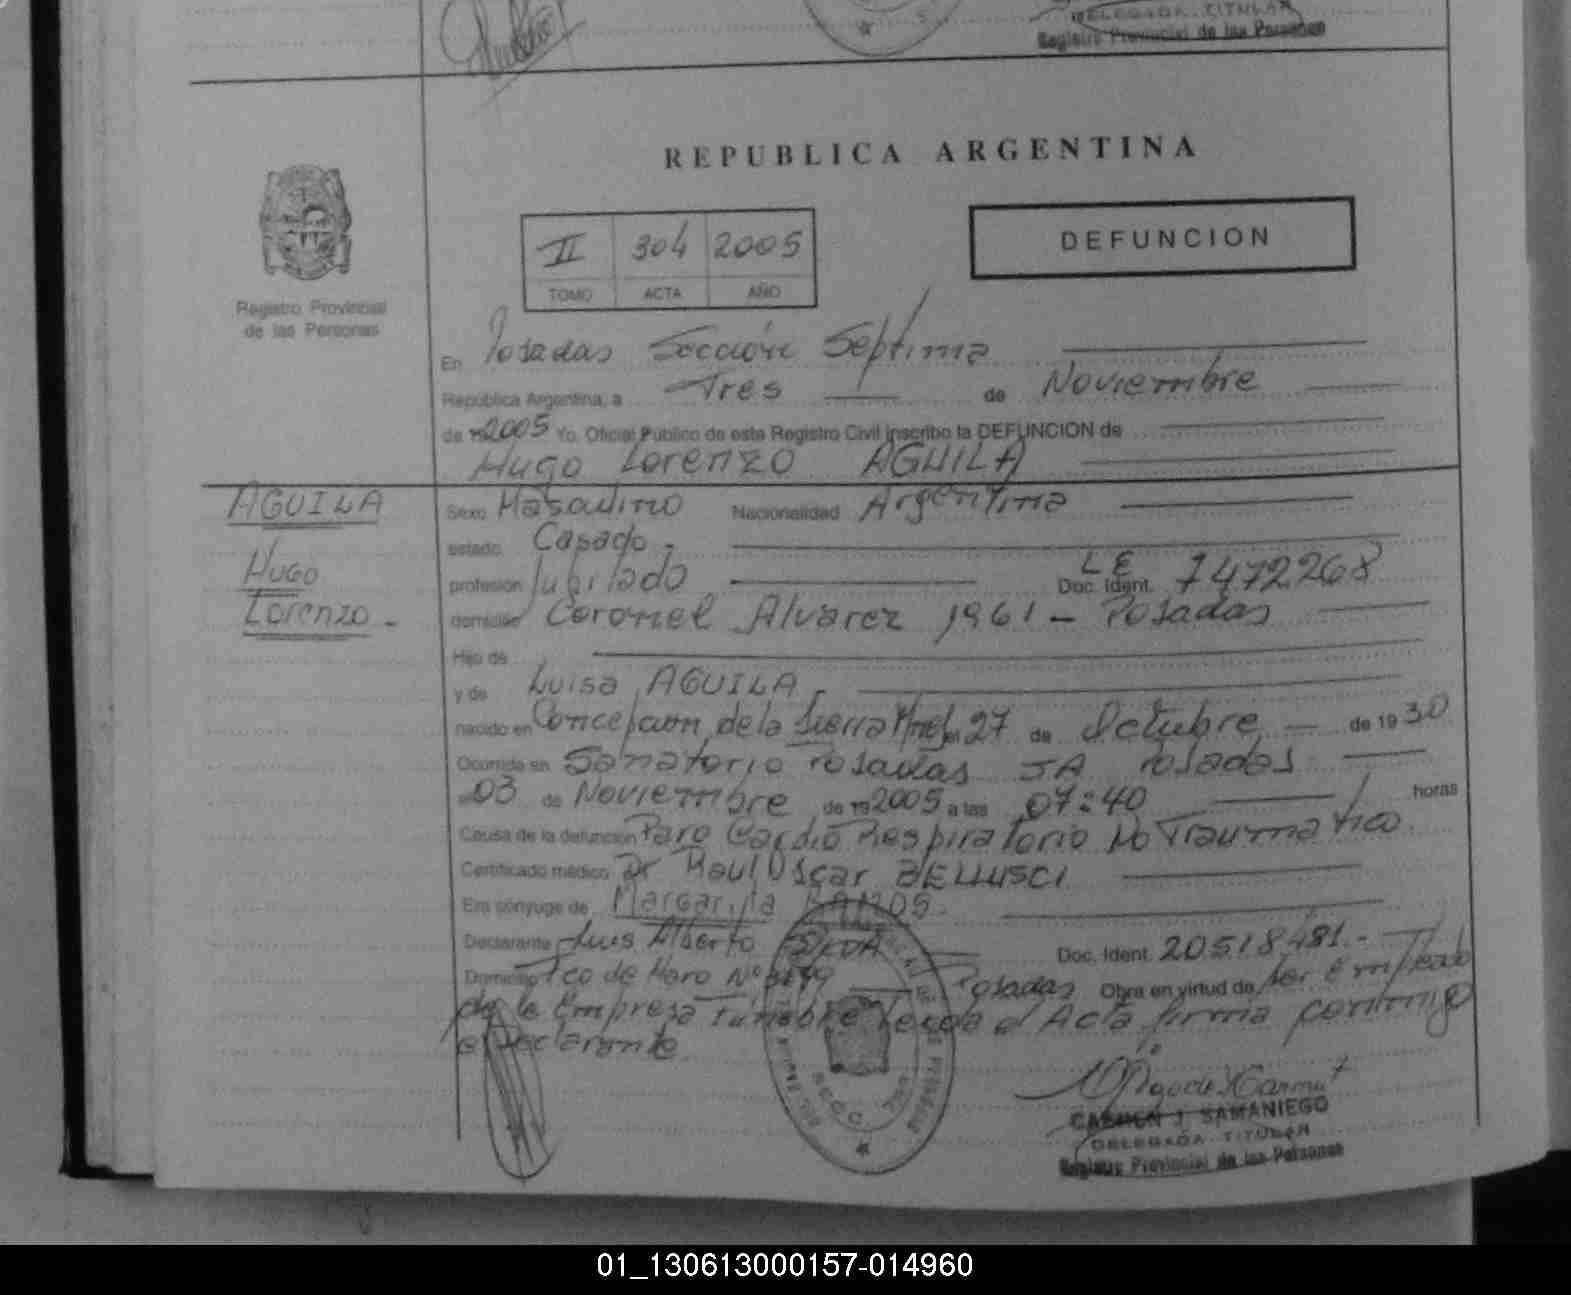 DELEGADA TITULAR
Registro Provincial de las Personas
REPUBLICA ARGENTINA
II 304 2005
TOMO ACTA AÑO
DEFUNCION
Registro Provincial
de las Personas
En Posadas Sección Septima
República Argentina, a Tres de Noviembre
de 19 2005 Yo, Oficial Público de este Registro Civil inscribo la DEFUNCION de
Hugo Lorenzo AGUILA
AGUILA
Hugo
Lorenzo -
Sexo Masculino Nacionalidad Argentina
estado Casado -
profesión Jubilado Doc. Ident. LE 7472268
domicilio Coronel Alvarez 1961 - Posadas
Hijo de
y de Luisa AGUILA -
nacido en Concepcion de la Sierra Mnes el 27 de Octubre de 1930
Ocurrida en Sanatorio Posadas SA Posadas
el 03 de Noviembre de 19 2005 a las 07:40 horas
Causa de la defunción Paro Cardio Respiratorio No Traumatico
Certificado médico Dr Raul Oscar BELLUSCI
Era cónyuge de Margarita RAMOS.
Declarante Luis Alberto Doc. Ident. 20518481.-
Domicilio Fco de Haro Nº Posadas Obra en virtud de Ser Empleado
de la Empresa Funebre Leida el Acta firma conmigo
el Declarante
CARMEN J. SAMANIEGO
DELEGADA TITULAR
Registro Provincial de las Personas
01_130613000157-014960